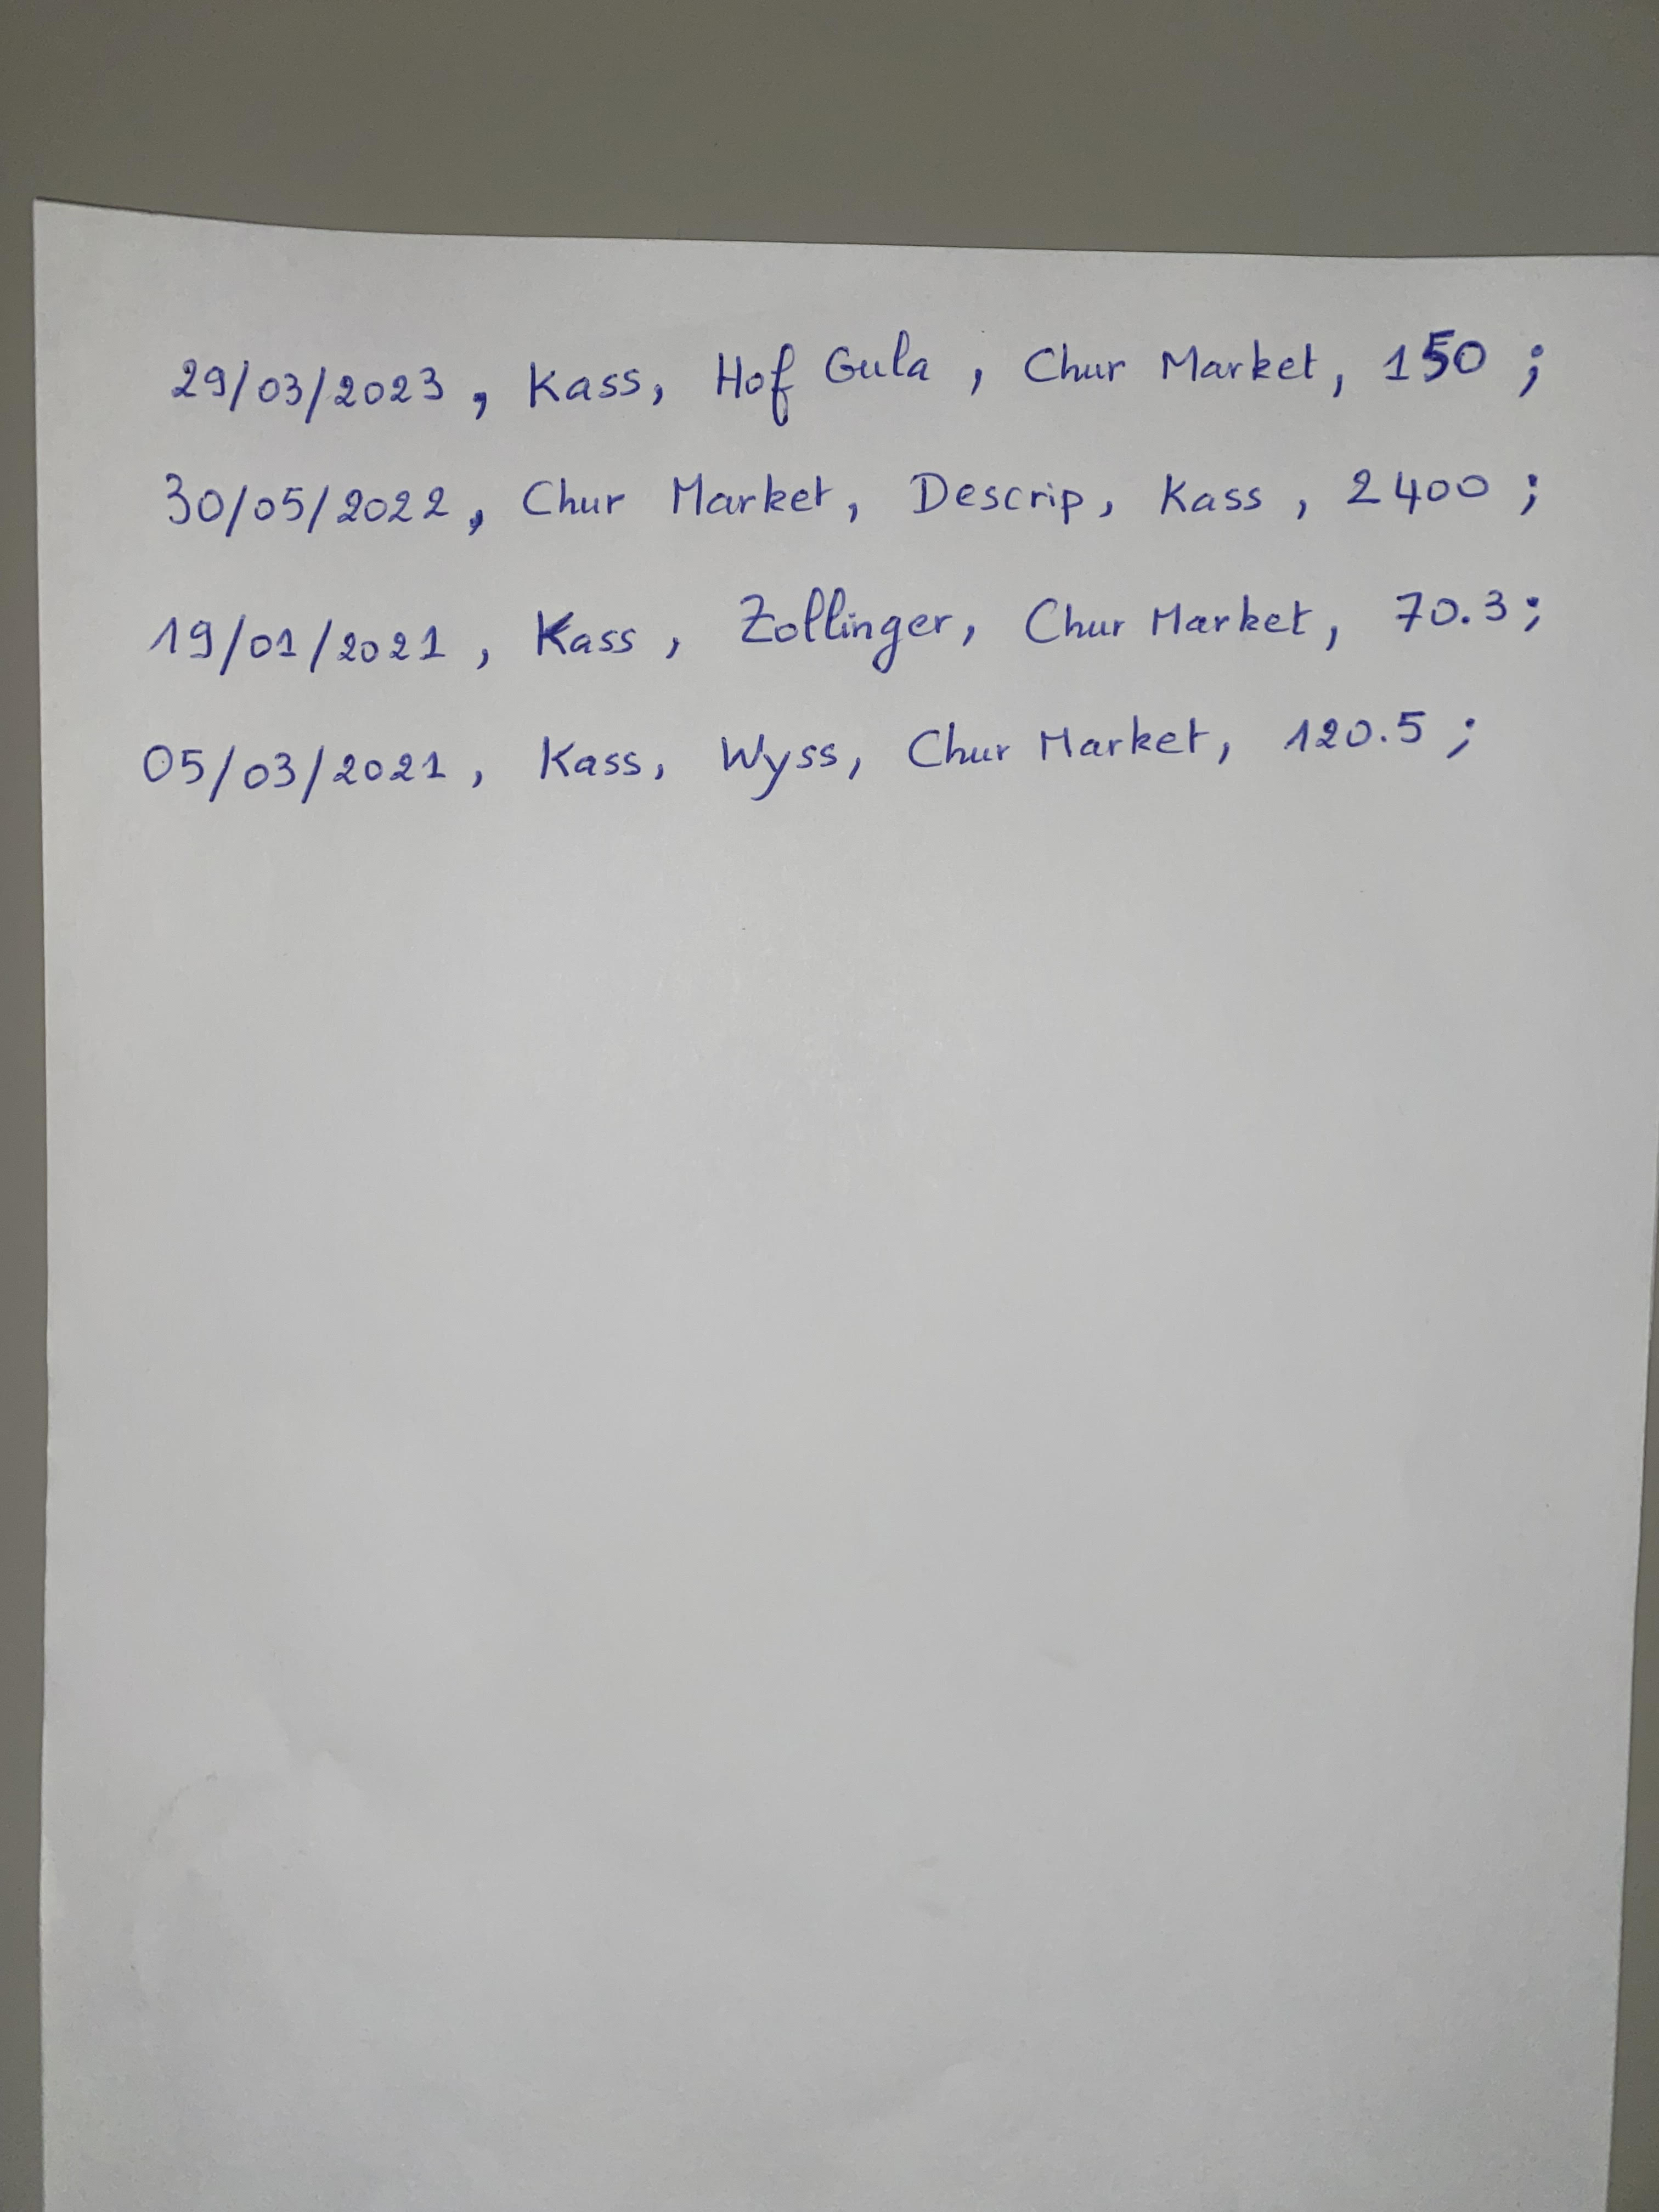 29/03/2023, Kass, Hof Gula, Chur Market, 150;
30/05/2022, Chur Market, Descrip, Kass, 2400;
19/01/2021, Kass, Zollinger, Chur Market, 70.3;
05/03/2021, Kass, Wyss, Chur Market, 120.5;